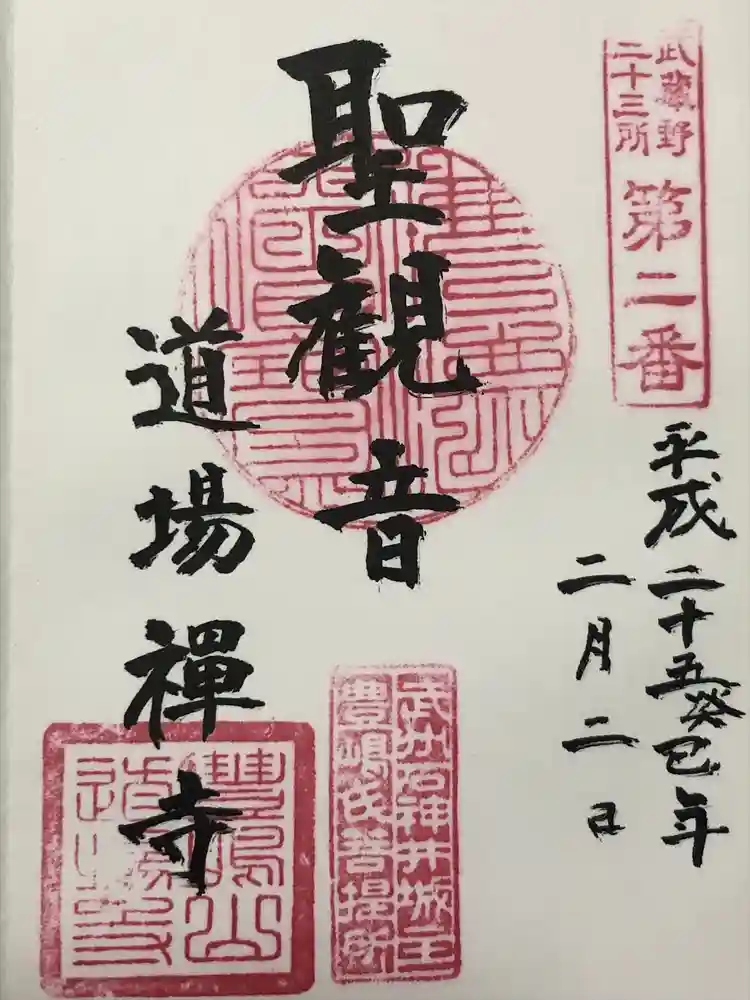 武蔵野
二十三所
第二番
平成二十五癸巳年
二月二日
聖観音
武州石神井城主
豊嶋氏菩提所
道場禪寺
豊嶋山
道場寺